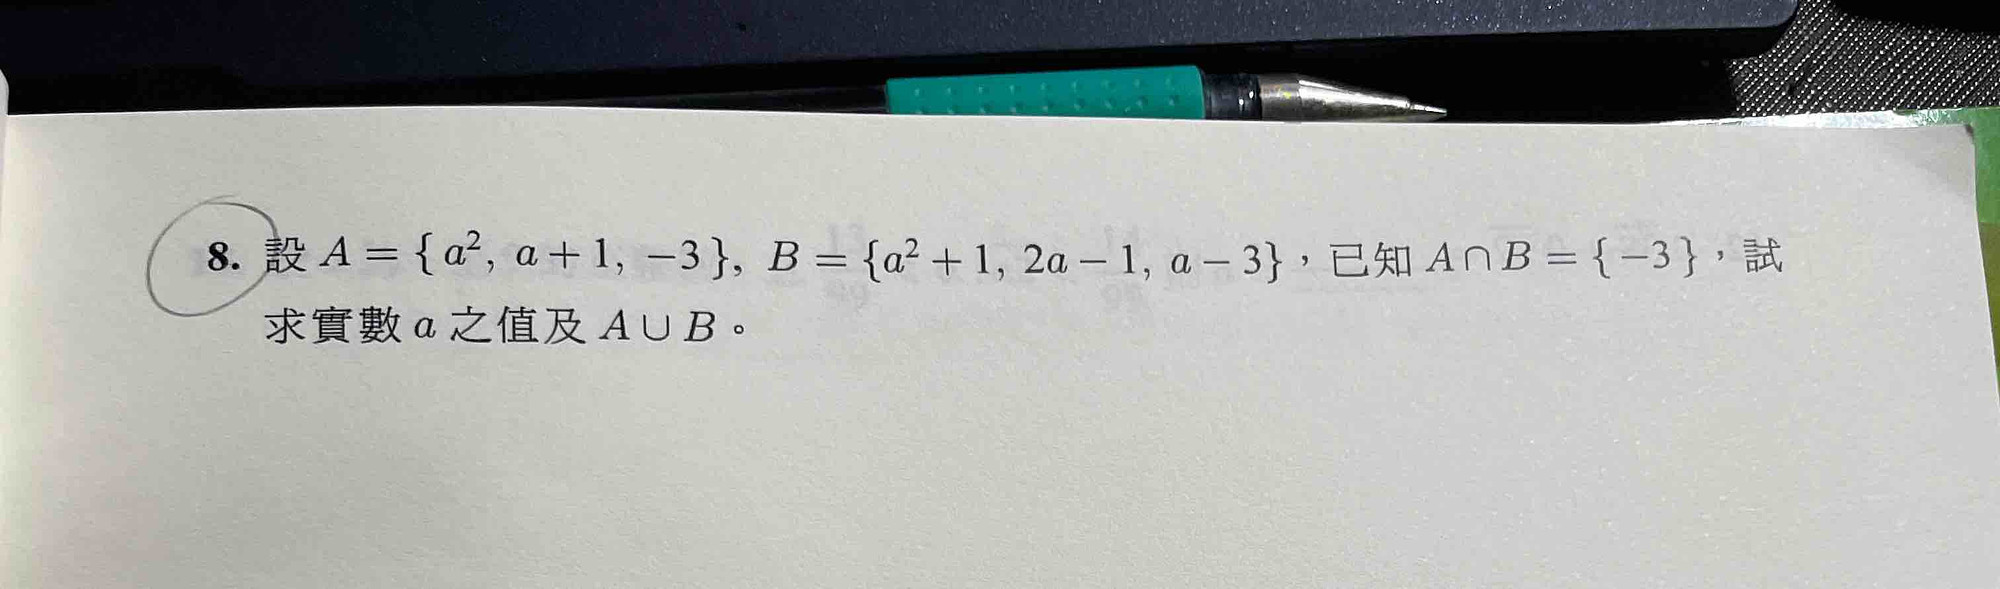 8. 設 A = { a², a + 1, −3 }, B = {a² + 1, 2a − 1, a − 3},已知 A ∩ B = { −3 },試
求實數 a 之值及 A ∪ B。